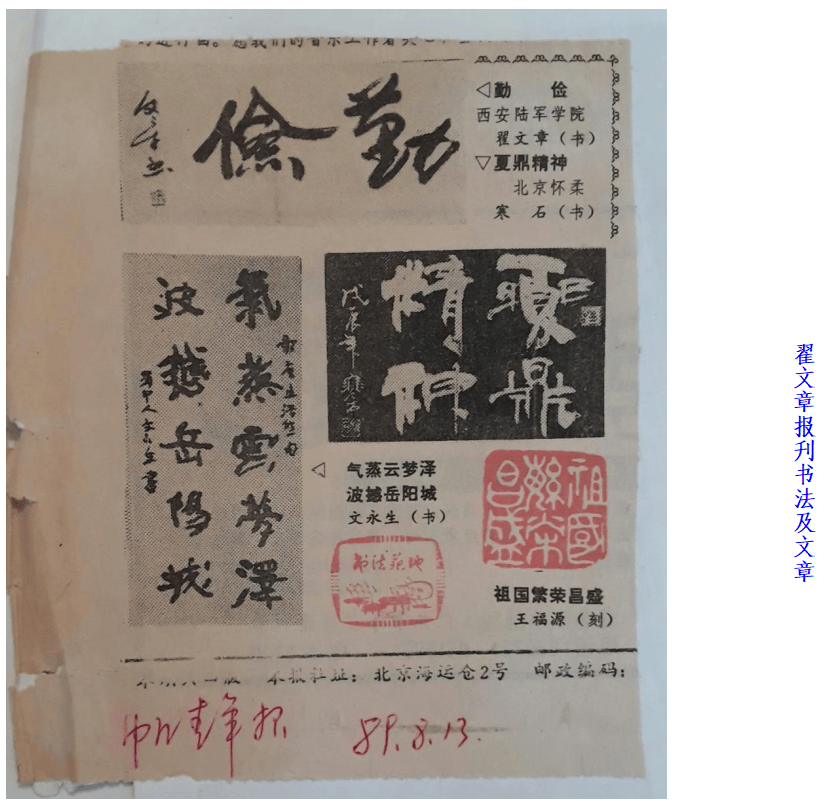 勤俭
文章书
◁勤 俭
西安陆军学院
翟文章（书）
▽夏鼎精神
北京怀柔
寒 石（书）
氣蒸雲夢澤
波撼岳陽城
夏鼎
精神
戊辰年寒石
◁
气蒸云梦泽
波撼岳阳城
文永生（书）
书法苑地
祖國
繁荣
昌盛
祖国繁荣昌盛
王福源（刻）
本报社址：北京海运仓2号 邮政编码：
中国青年报 89.8.13.
翟文章报刊书法及文章